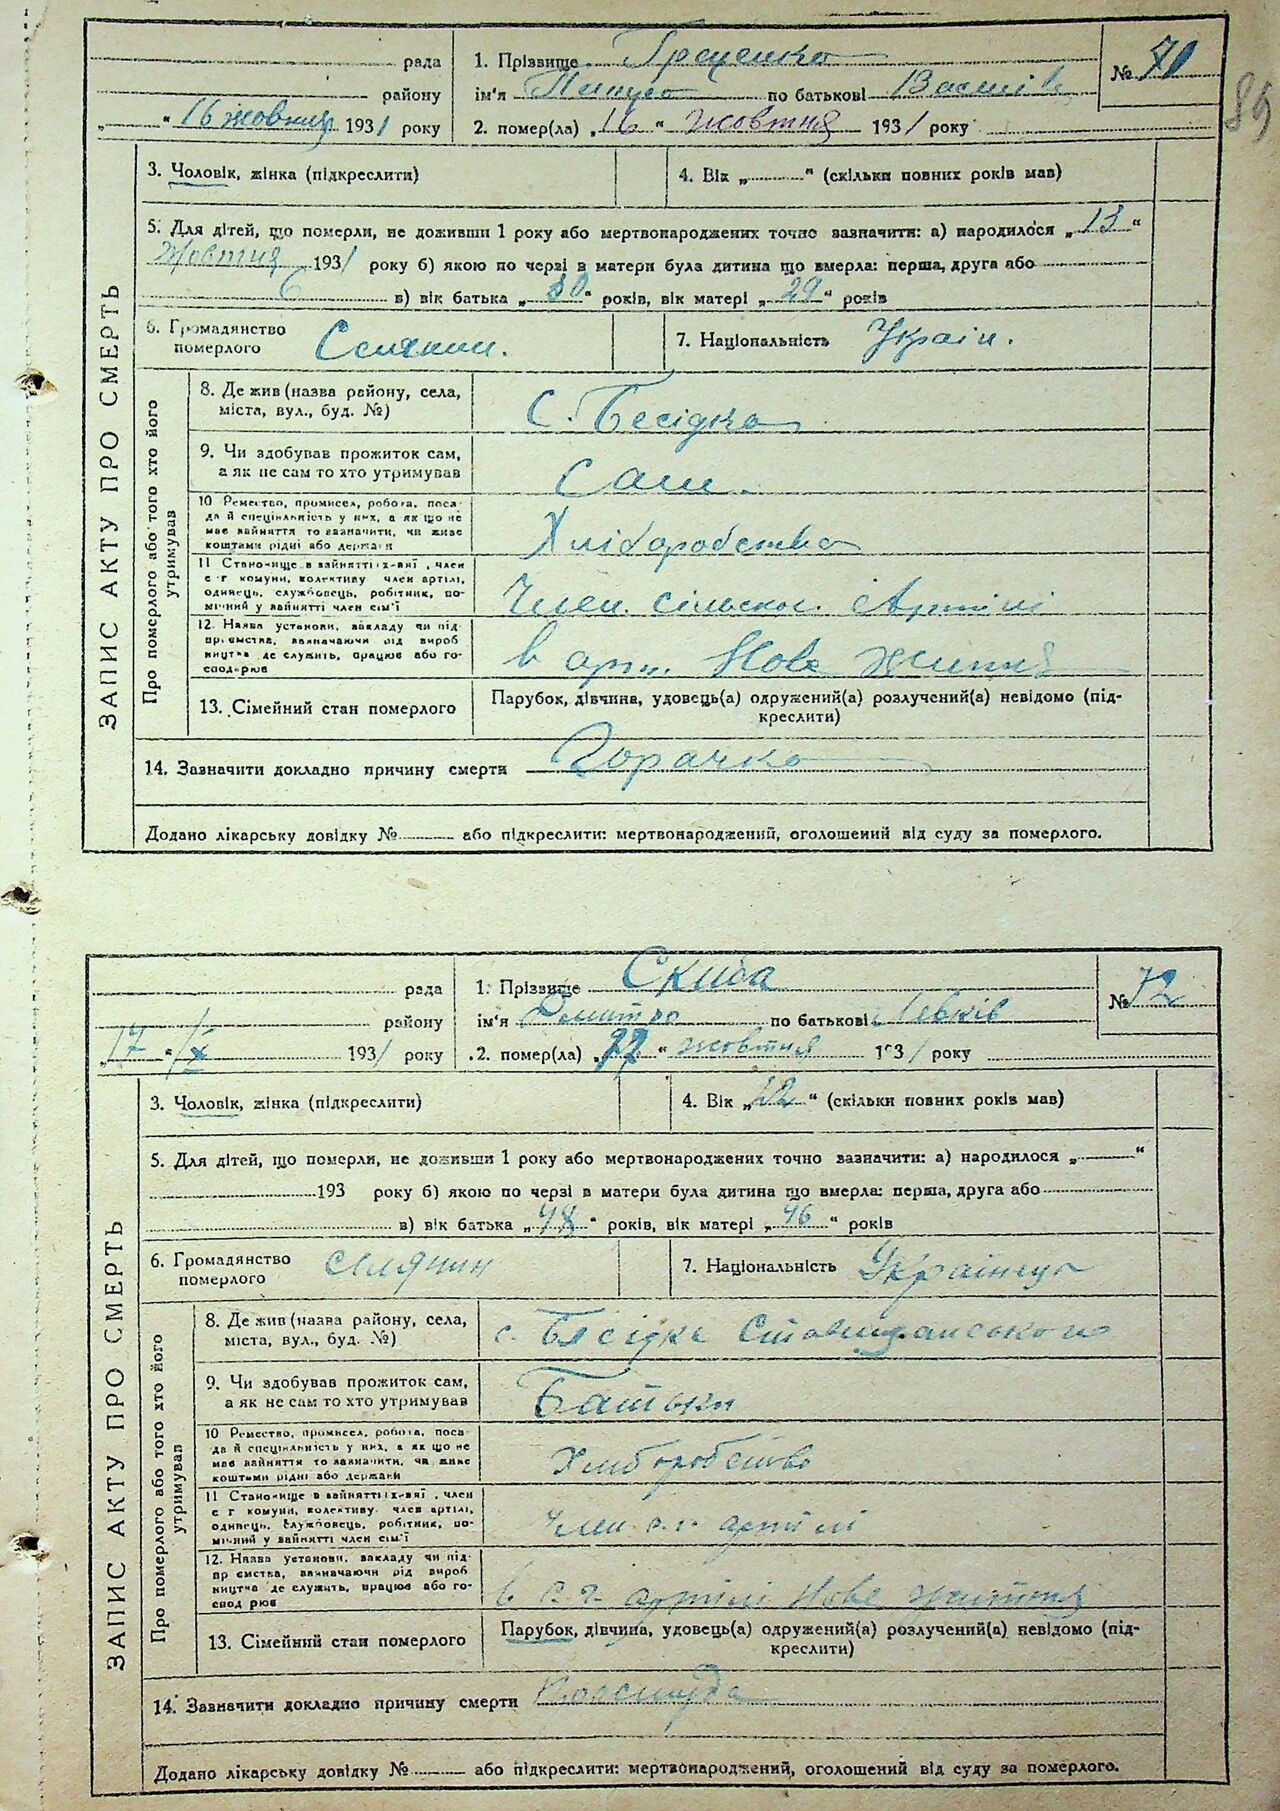 рада
району
„ “ 16 жовтня 1931 року
1. Прізвище Грещенко
ім'я по батькові Василів
2. помер(ла) „16“ жовтня 1931 року
№ 70
89
ЗАПИС АКТУ ПРО СМЕРТЬ
3. Чоловік, жінка (підкреслити)
4. Вік „ “ (скільки повних років мав)
5. Для дітей, що померли, не доживши 1 року або мертвонароджених точно зазначити: а) народилося „13“
Жовтня 1931 року б) якою по черзі в матери була дитина що вмерла: перша, друга або
6 в) вік батька „30“ років, вік матері „29“ років
6. Громадянство
померлого
Селянин.
7. Національність Україн.
Про померлого або того хто його
утримував
8. Де жив (назва району, села,
міста, вул., буд. №)
с. Бесідка
9. Чи здобував прожиток сам,
а як не сам то хто утримував
Сам.
10 Ремество, промисел, робота, поса-
да й спеціяльність у них, а як що не
має зайняття то зазначити, чи живе
коштами рідні або держави
Хліборобство
11 Становище в зайнятті їх-янї, член
с г комуни, колективу член артілі,
одинець, службовець, робітник, по-
мічний у зайнятті член сім'ї
Член. сільськ. Артілі
12. Назва установи, закладу чи під-
приємства, зазначаючи рід вироб
ництва де служить, працює або го-
сподарює
в арт. Нове життя
13. Сімейний стан померлого
Парубок, дівчина, удовець(а) одружений(а) розлучений(а) невідомо (під-
креслити)
14. Зазначити докладно причину смерти Горачка
Додано лікарську довідку № або підкреслити: мертвонароджений, оголошений від суду за померлого.
рада
району
„17“ /X 1931 року
1. Прізвище Скиба
ім'я Дмитро по батькові Левків
2. помер(ла) „ “ жовтня 1931 року
№ 72
ЗАПИС АКТУ ПРО СМЕРТЬ
3. Чоловік, жінка (підкреслити)
4. Вік „22“ (скільки повних років мав)
5. Для дітей, що померли, не доживши 1 року або мертвонароджених точно зазначити: а) народилося „ “
193 року б) якою по черзі в матери була дитина що вмерла: перша, друга або
в) вік батька „48“ років, вік матері „46“ років
6. Громадянство
померлого
селянин
7. Національність Українець
Про померлого або того хто його
утримував
8. Де жив (назва району, села,
міста, вул., буд. №)
с. Бесідка Ставищанського
9. Чи здобував прожиток сам,
а як не сам то хто утримував
Батьки
10 Ремество, промисел, робота, поса-
да й спеціяльність у них, а як що не
має зайняття то зазначити, чи живе
коштами рідні або держави
Хліборобство
11 Становище в зайнятті їх-янї, член
с г комуни, колективу член артілі,
одинець, службовець, робітник, по-
мічний у зайнятті член сім'ї
член с.г. артілі
12. Назва установи, закладу чи під-
приємства, зазначаючи рід вироб
ництва де служить, працює або го-
сподарює
в с.г. артілі Нове життя
13. Сімейний стан померлого
Парубок, дівчина, удовець(а) одружений(а) розлучений(а) невідомо (під-
креслити)
14. Зазначити докладно причину смерти
Додано лікарську довідку № або підкреслити: мертвонароджений, оголошений від суду за померлого.